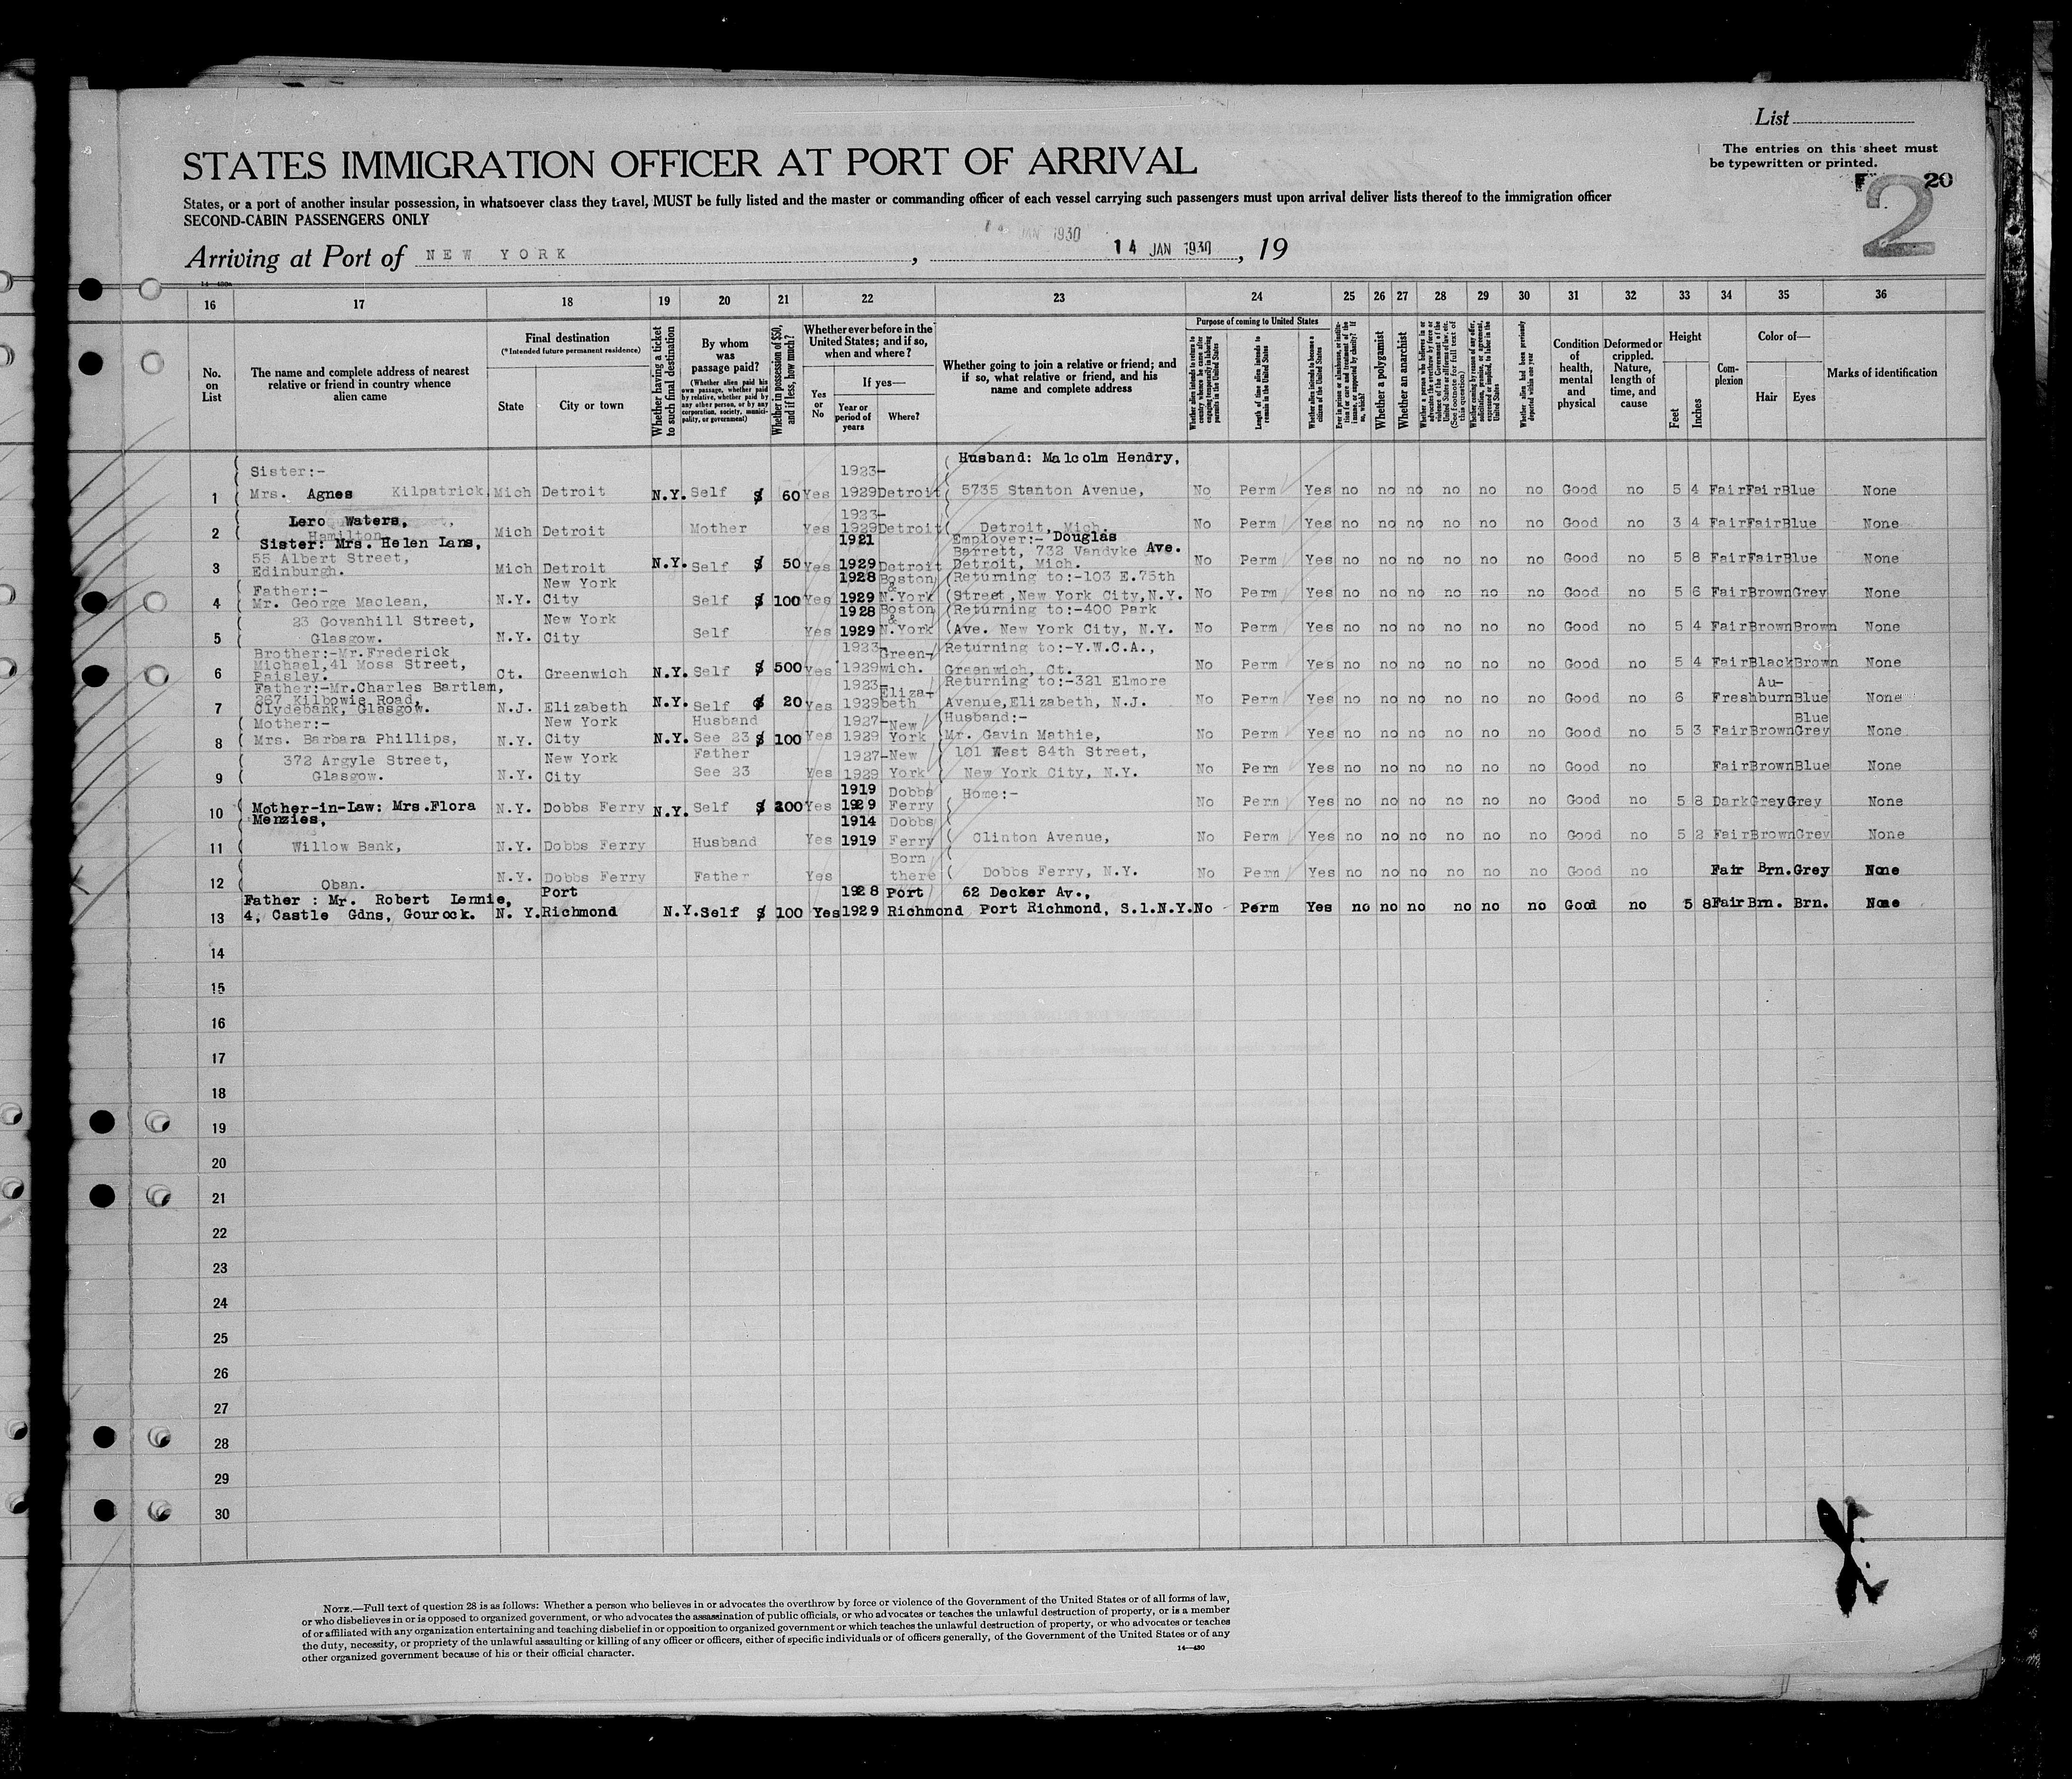 List
The entries on this sheet must
be typewritten or printed.
20
2
STATES IMMIGRATION OFFICER AT PORT OF ARRIVAL
States, or a port of another insular possession, in whatsoever class they travel, MUST be fully listed and the master or commanding officer of each vessel carrying such passengers must upon arrival deliver lists thereof to the immigration officer
SECOND-CABIN PASSENGERS ONLY
JAN 1930
Arriving at Port of NEW YORK , 14 JAN 1930 , 19
16 17 18 19 20 21 22 23 24 25 26 27 28 29 30 31 32 33 34 35 36
No. on List
The name and complete address of nearest relative or friend in country whence alien came
Final destination
(*Intended future permanent residence)
State
City or town
Whether having a ticket to such final destination
By whom was passage paid?
(Whether alien paid his own passage, whether paid by relative, whether paid by any other person, or by any corporation, society, municipality, or government)
Whether in possession of $50, and if less, how much?
Whether ever before in the United States; and if so, when and where?
Yes or No
If yes—
Year or period of years
Where?
Whether going to join a relative or friend; and if so, what relative or friend, and his name and complete address
Purpose of coming to United States
Length of time alien intends to remain in the United States
Whether alien intends to become a citizen of the United States
Whether a polygamist
Whether an anarchist
Whether alien had been previously deported within one year
Condition of health, mental and physical
Deformed or crippled. Nature, length of time, and cause
Height
Feet
Inches
Com-plexion
Color of—
Hair
Eyes
Marks of identification
Sister:- 1923- Husband: Malcolm Hendry,
1 Mrs. Agnes Kilpatrick, Mich Detroit N.Y. Self $ 60 Yes 1929 Detroit 5735 Stanton Avenue, No Perm Yes no no no no no no Good no 5 4 Fair Fair Blue None
Lero Waters, 1923-
2 Hamilton Mich Detroit Mother Yes 1929 Detroit Detroit, Mich. No Perm Yes no no no no no no Good no 3 4 Fair Fair Blue None
Sister: Mrs. Helen Lans, 1921 Employer:- Douglas
55 Albert Street, Barrett, 732 Vandyke Ave.
3 Edinburgh. Mich Detroit N.Y. Self $ 50 Yes 1929 Detroit Detroit, Mich. No Perm Yes no no no no no no Good no 5 8 Fair Fair Blue None
Father:- New York 1928 Boston & (Returning to:-103 E.75th
4 Mr. George Maclean, N.Y. City Self $ 100 Yes 1929 N.York (Street, New York City, N.Y. No Perm Yes no no no no no no Good no 5 6 Fair Brown Grey None
23 Govanhill Street, New York 1928 Boston & (Returning to:-400 Park
5 Glasgow. N.Y. City Self Yes 1929 N.York (Ave. New York City, N.Y. No Perm Yes no no no no no no Good no 5 4 Fair Brown Brown None
Brother:-Mr.Frederick 1923- Green- Returning to:-Y.W.C.A.,
Michael, 41 Moss Street,
6 Paisley. Ct. Greenwich N.Y. Self $ 500 Yes 1929 wich. Greenwich, Ct. No Perm Yes no no no no no no Good no 5 4 Fair Black Brown None
Father:-Mr.Charles Bartlam, 1923- Eliza- Returning to:-321 Elmore Au-
267 Kilbowie Road,
7 Clydebank, Glasgow. N.J. Elizabeth N.Y. Self $ 20 Yes 1929 beth Avenue, Elizabeth, N.J. No Perm Yes no no no no no no Good no 6 Fresh burn Blue None
Mother:- New York Husband 1927- New Husband:- Blue
8 Mrs. Barbara Phillips, N.Y. City N.Y. See 23 $ 100 Yes 1929 York Mr. Gavin Mathie, No Perm Yes no no no no no no Good no 5 3 Fair Brown Grey None
372 Argyle Street, New York Father 1927- New 101 West 84th Street,
9 Glasgow. N.Y. City See 23 Yes 1929 York New York City, N.Y. No Perm Yes no no no no no no Good no Fair Brown Blue None
1919 Dobbs Home:-
10 Mother-in-Law: Mrs.Flora N.Y. Dobbs Ferry N.Y. Self $ 200 Yes 1929 Ferry No Perm Yes no no no no no no Good no 5 8 Dark Grey Grey None
Menzies, 1914 Dobbs
11 Willow Bank, N.Y. Dobbs Ferry Husband Yes 1919 Ferry Clinton Avenue, No Perm Yes no no no no no no Good no 5 2 Fair Brown Grey None
Born
12 Oban. N.Y. Dobbs Ferry Father Yes there Dobbs Ferry, N.Y. No Perm Yes no no no no no no Good no Fair Brn. Grey None
Father : Mr. Robert Lennie, Port 1928 Port 62 Decker Av.,
13 4, Castle Gdns, Gourock. N. Y. Richmond N.Y. Self $ 100 Yes 1929 Richmond Port Richmond, S.1.N.Y. No Perm Yes no no no no no no Good no 5 8 Fair Brn. Brn. None
14
15
16
17
18
19
20
21
22
23
24
25
26
27
28
29
30
NOTE.—Full text of question 28 is as follows: Whether a person who believes in or advocates the overthrow by force or violence of the Government of the United States or of all forms of law,
or who disbelieves in or is opposed to organized government, or who advocates the assassination of public officials, or who advocates or teaches the unlawful destruction of property, or is a member
of or affiliated with any organization entertaining and teaching disbelief in or opposition to organized government or which teaches the unlawful destruction of property, or who advocates or teaches
the duty, necessity, or propriety of the unlawful assaulting or killing of any officer or officers, either of specific individuals or of officers generally, of the Government of the United States or of any
other organized government because of his or their official character.
14—430